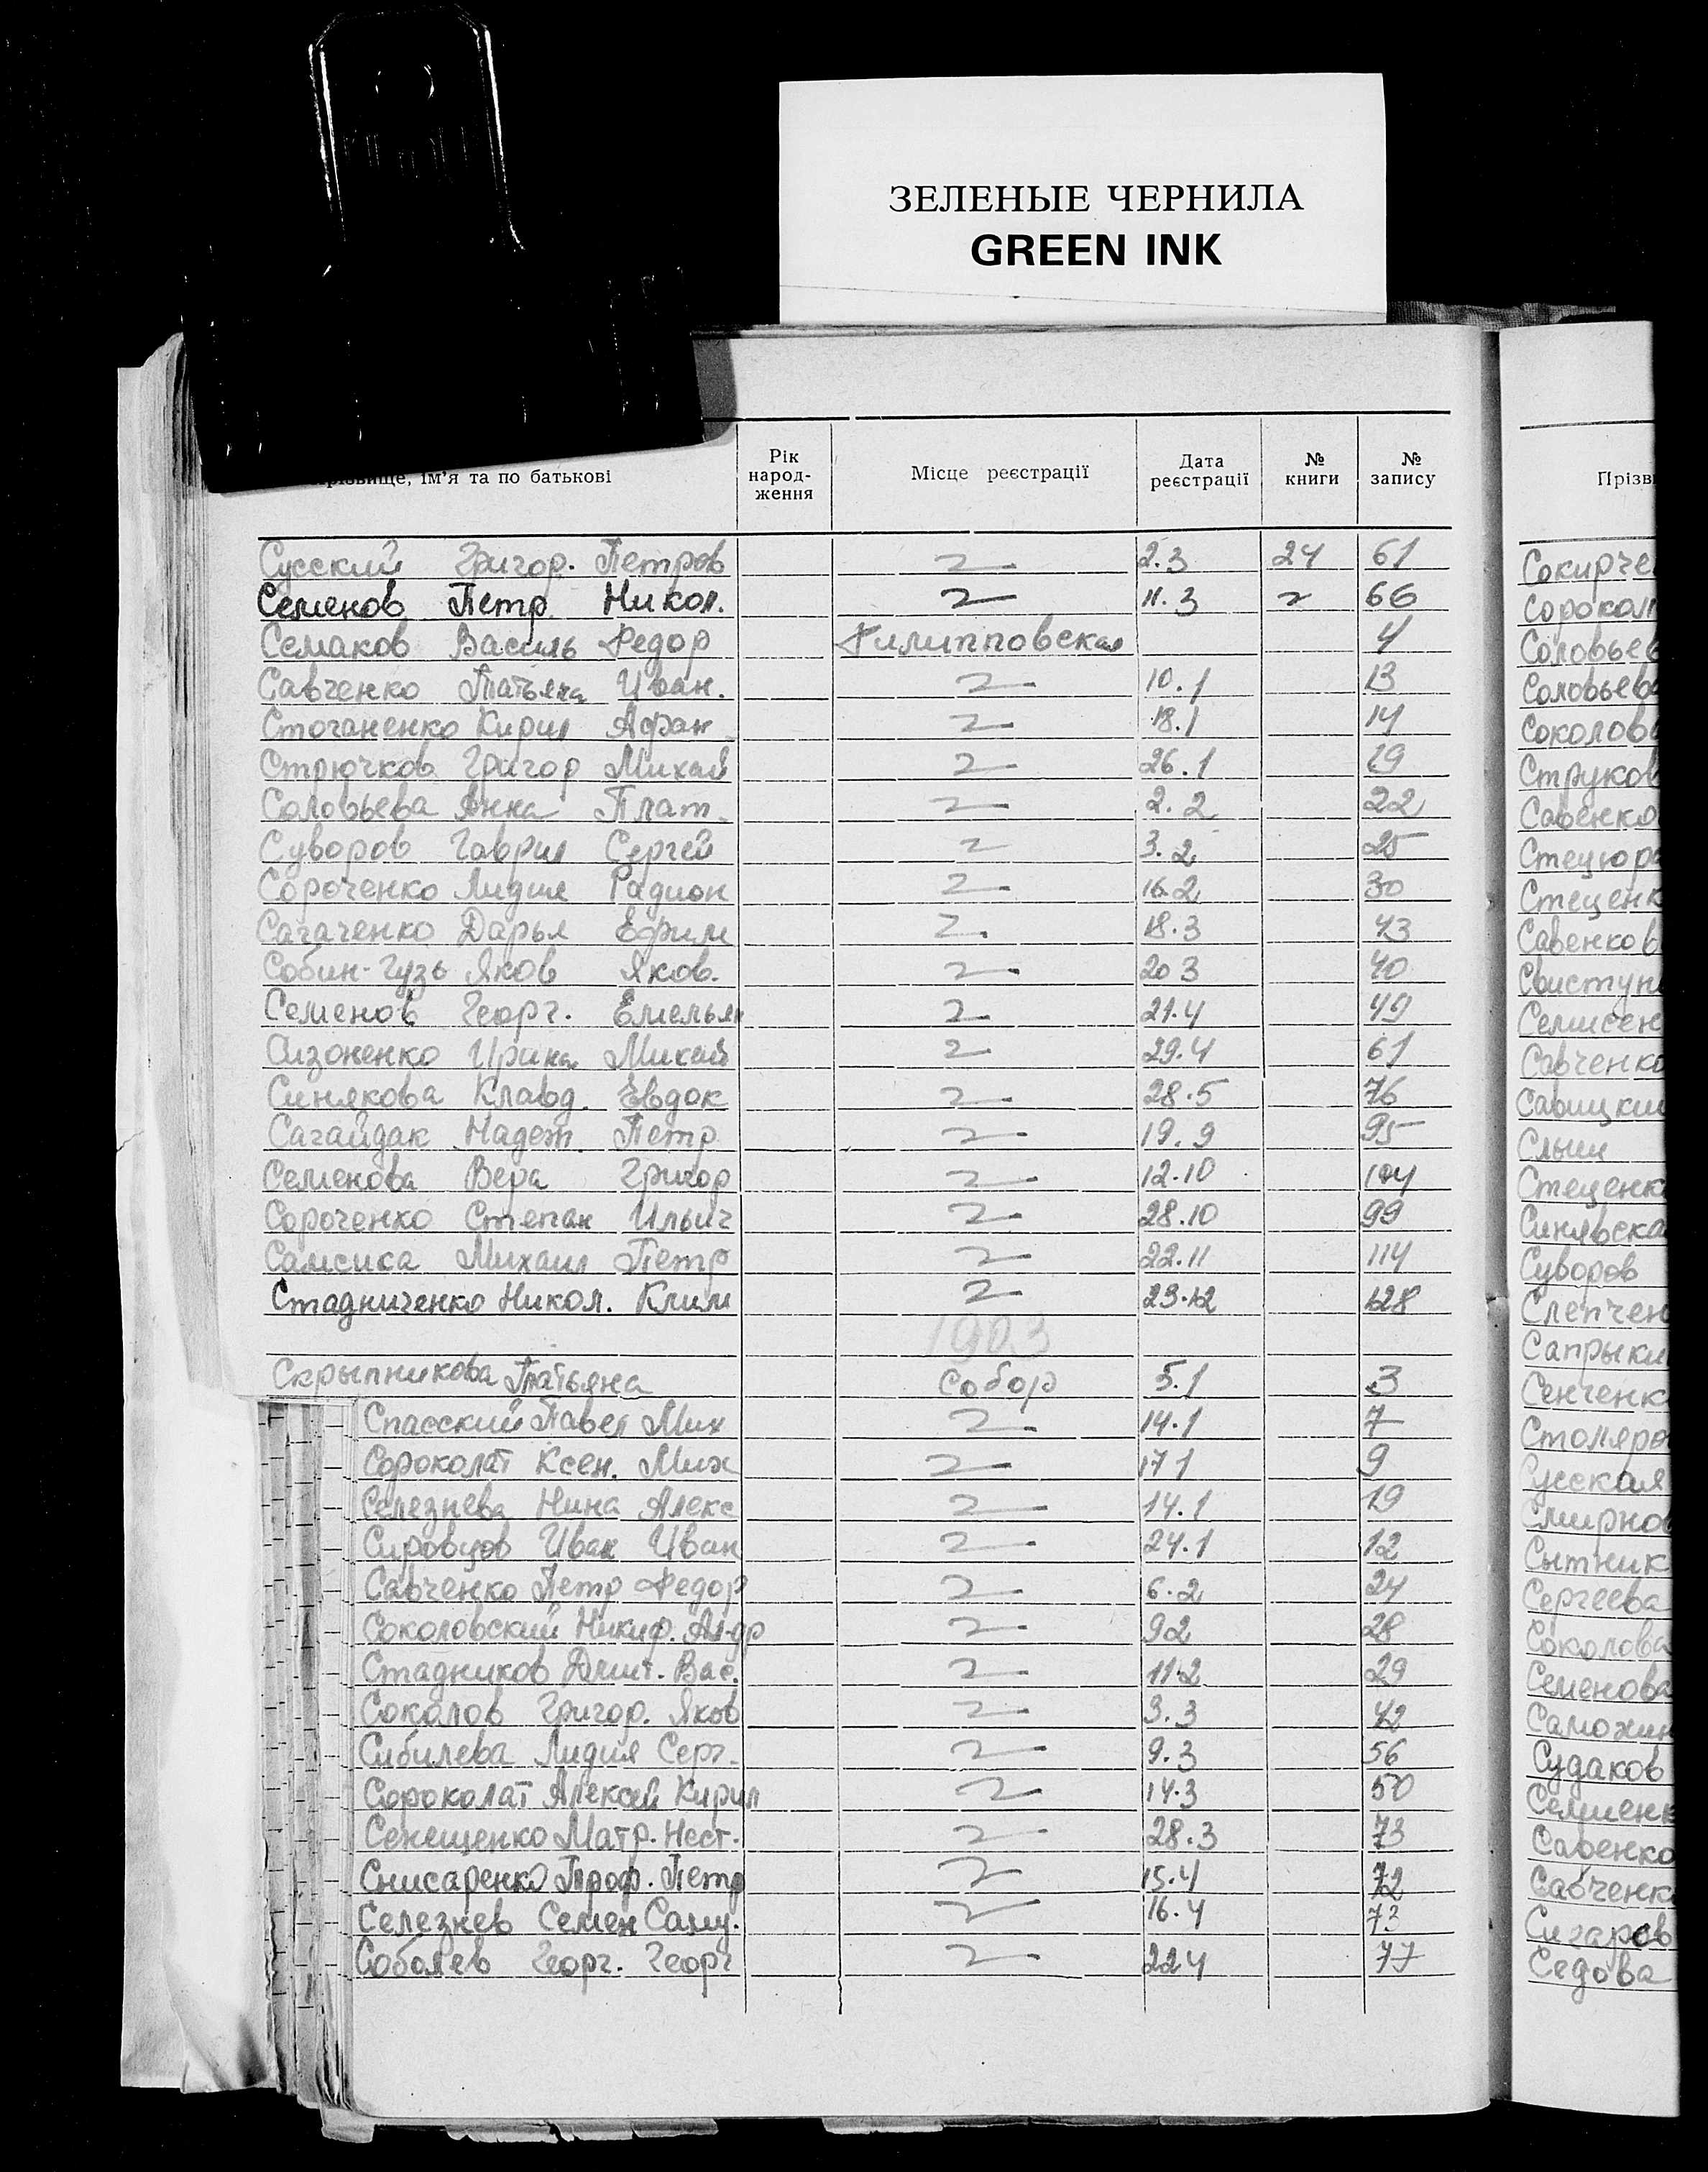 ЗЕЛЕНЫЕ ЧЕРНИЛА
GREEN INK
ім'я та по батькові Рік народження Місце реєстрації Дата реєстрації № книги № запису
Сусский Григор. Петров 2.3 24 61
Семенов Петр Никол. 11.3 66
Семаков Василь Федор Филипповская 4
Савченко Татьяна Иван. 10.1 13
Стоганенко Кирил Афан 18.1 14
Стрючков Григор Михай 26.1 19
Соловьева Анна Плат. 2.2 22
Суворов Гаврил Сергей 3.2 25
Сороченко Лидия Радион 16.2 30
Сагаченко Дарья Ефим 18.3 43
Собин-Гузь Яков Яков. 20 3 40
Семенов Георг. Емельян 21.4 49
Сизоненко Ирина Михай 29.4 61
Синякова Клавд. Евдок 28.5 76
Сагайдак Надеж. Петр 19.9 95
Семенова Вера Григор 12.10 104
Сороченко Степан Ильич 28.10 99
Самсика Михаил Петр 22.11 114
Стадниченко Никол. Клим 23.12 128
1903
Скрыпникова Татьяна Собор 5.1 3
Спасский Павел Мих 14.1 7
Сороколат Ксен. Мих 17 1 9
Селезнева Нина Алекс 14.1 19
Сировцов Иван Иван 24.1 12
Савченко Петр Федор 6.2 24
Соколовский Никиф. Ал-др 9 2 28
Стадников Дмит. Вас. 11.2 29
Соколов Григор. Яков 3.3 42
Сибилева Лидия Серг. 9.3 56
Сороколат Алексей Кирил 14.3 50
Сенещенко Матр. Нест. 28.3 73
Снисаренко Троф. Петр 15.4 72
Селезнев Семен Саму. 16.4 73
Соболев Георг. Георг 22 4 77
Прізв
Сокирче
Сорокол
Соловьев
Соловьева
Соколов
Струков
Савенко
Стецюра
Стеценк
Савенков
Свистун
Семисен
Савченко
Савицки
Слыш
Стеценк
Синявска
Суворов
Слепчен
Сапрыки
Сенченк
Столяро
Сусская
Смирнов
Сытник
Сергеева
Соколова
Семенова
Саможин
Судаков
Семенк
Савенко
Савченк
Сигарев
Седова